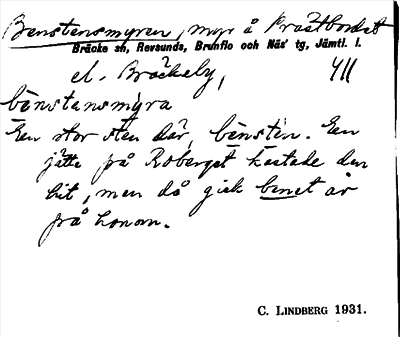 Benstensmyren, myr å Prästbordet
Bräcke sn, Revsunds, Brunflo och Näs' tg, Jämtl. l.
el. Bräckeby, 411
bènstansmỳra
En stor sten där, bènstèn. En
jätte på Roberget kastade den
hit, men då gick benet av
på honom.
C. LINDBERG 1931.